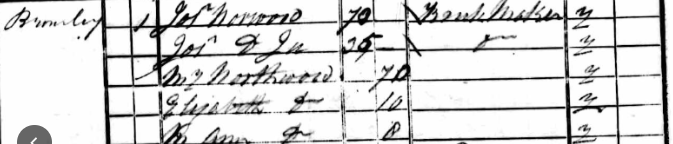 Bromley 1 Josh Norwood 70 Bucklemaker y
Josh Do Jn 35 Do y
My Northwood 70 y
Elizabeth Do 10 y
M Ann Do 8 y